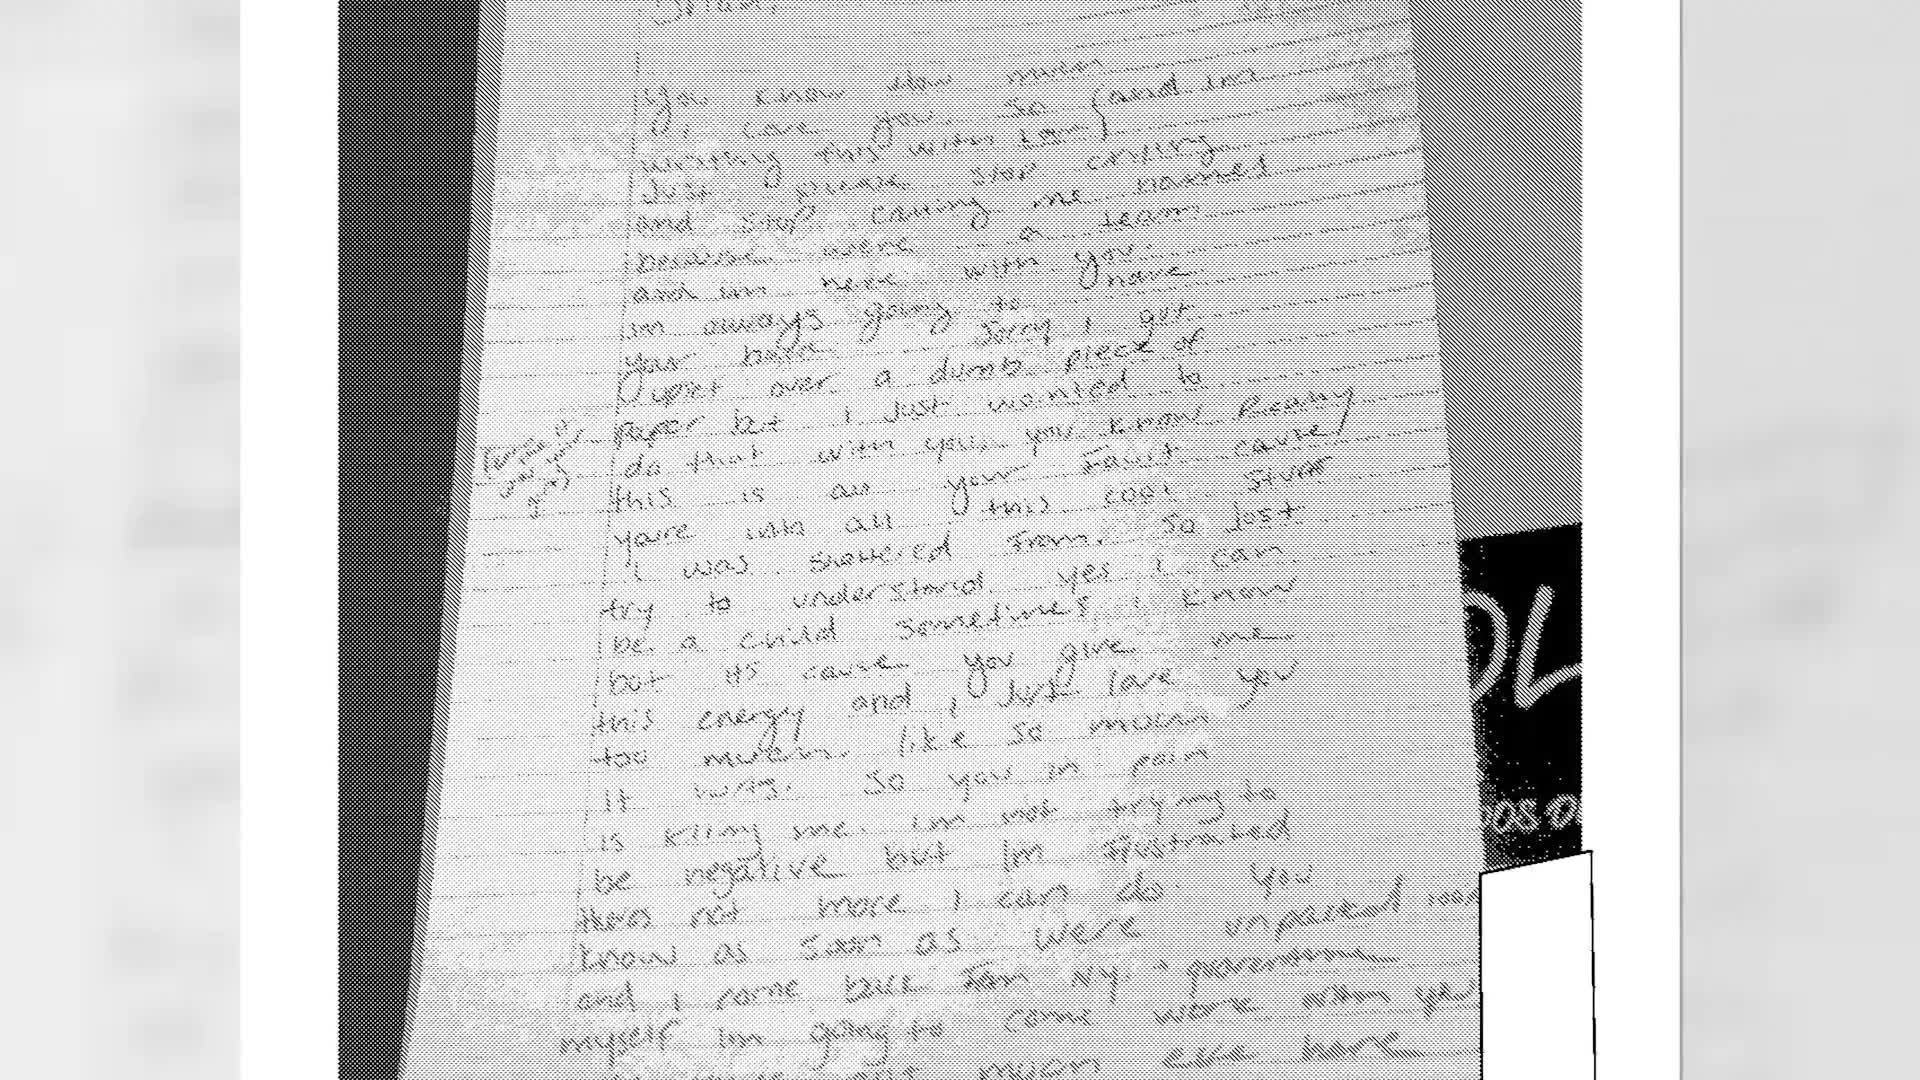 Brian,
You know how much
I love you so and im
writing this with love
Just please stop crying
and stop calling me names
because were a team
and im here with you
im always going to have
your back. Sorry i got
upset over a dumb piece of
paper but i Just wanted to
do that with you, you know Really
this is all your fault cause
youre into all this cool stuff
i was from. So Just
try to understand yes i can
be a child sometimes i know
but its cause you give me
this energy and i Just love you
too much like so much
it So you in pain
is killing me. im not trying to
be negative but Im frustrated
theres not more i can do. You
know as soon as were unpacked
and i come back from NY.
myself Im going to come work with
much else here
DL